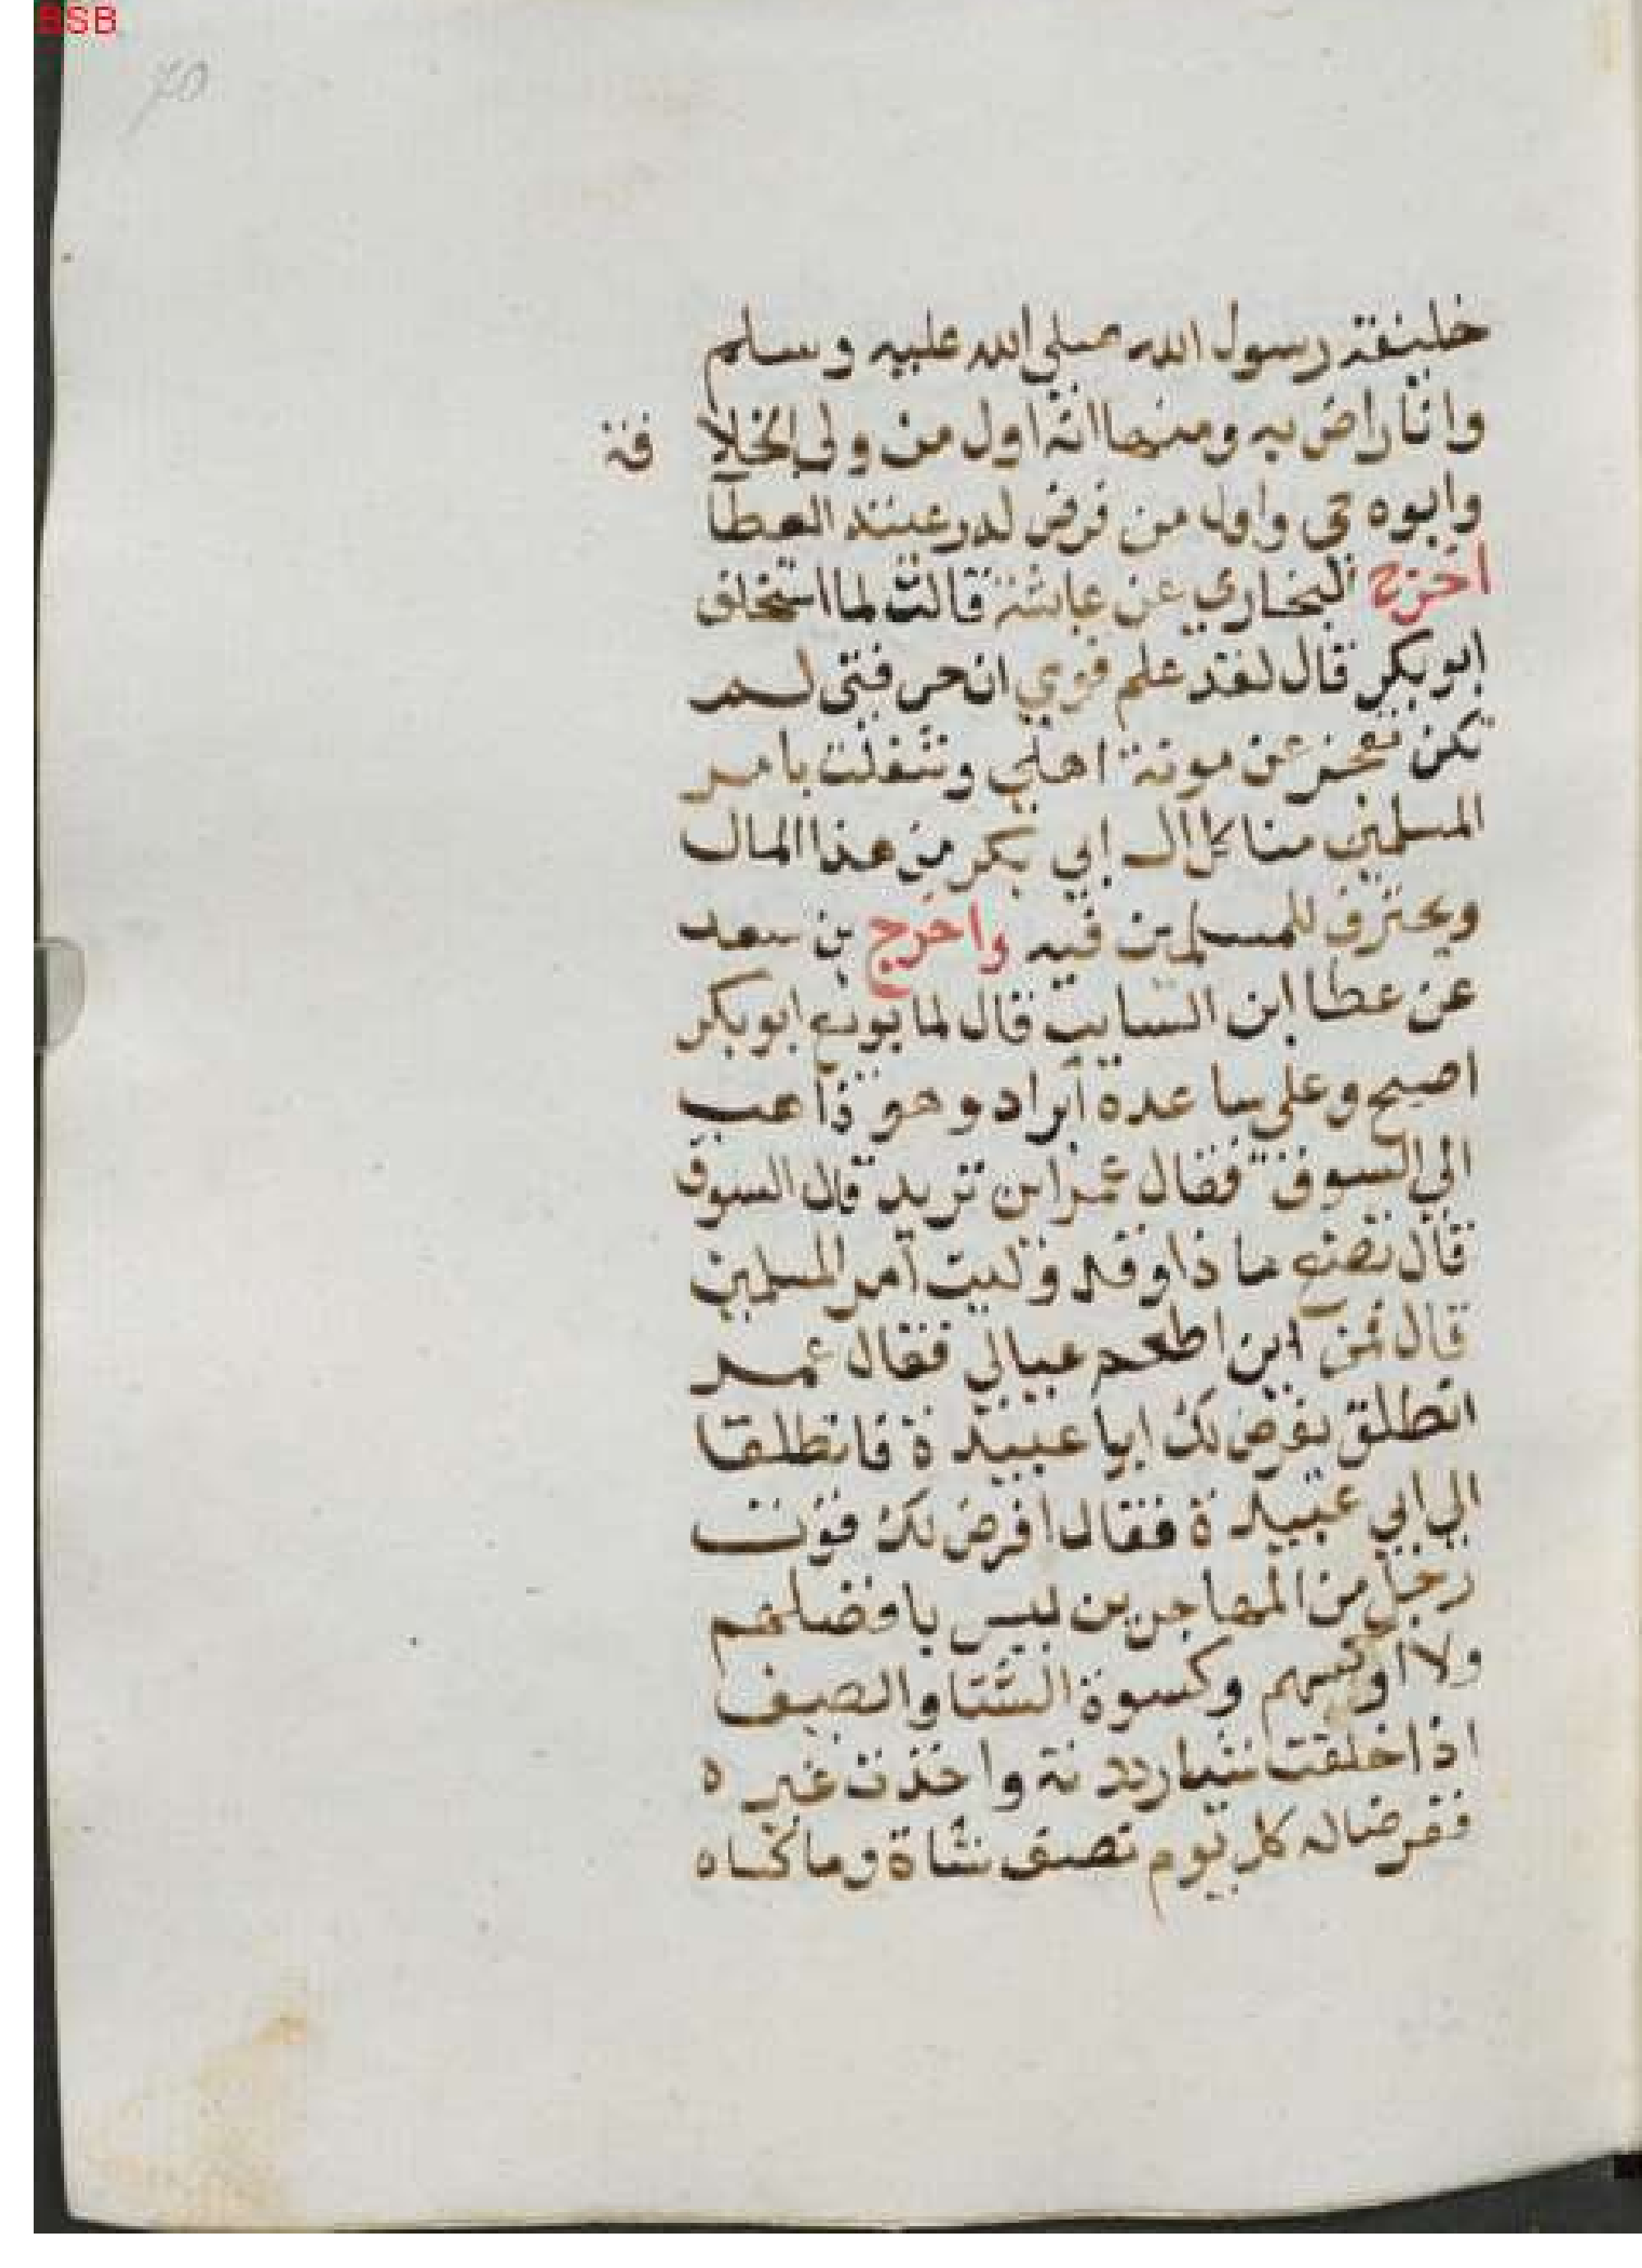 BSB
70
خليفة رسول الله صلى الله عليه وسلم
وانا راض به ومنها انه اول من ولي الخلا فة
وابوه حي واول من فرض له رعيته العطا
اخرج البخاري عن عايشة قالت لما استخلف
ابو بكر قال لقد علم قومي ان حرفتي لم
تكن تعجز عن مونة اهلي وشغلت بامر
المسلمين فسياكل ال ابي بكر من هذا المال
ويحترف للمسلمين فيه واخرج بن سعد
عن عطا ابن السايب قال لما بويع ابو بكر
اصبح وعلى ساعده ابراد وهو ذاهب
الى السوق فقال عمر اين تريد قال السوق
قال تصنع ما ذا وقد وليت امر المسلمين
قال فمن اين اطعم عيالي فقال عمر
انطلق يفرض لك ابا عبيدة فانطلقا
الى ابي عبيدة فقال افرض لك قوت
رجل من المهاجرين ليس بافضلهم
ولا اوكسهم وكسوة الشتا والصيف
اذا اخلقت شيا رددته واخذت غيره
ففرضا له كل يوم نصف شاة وما كساه